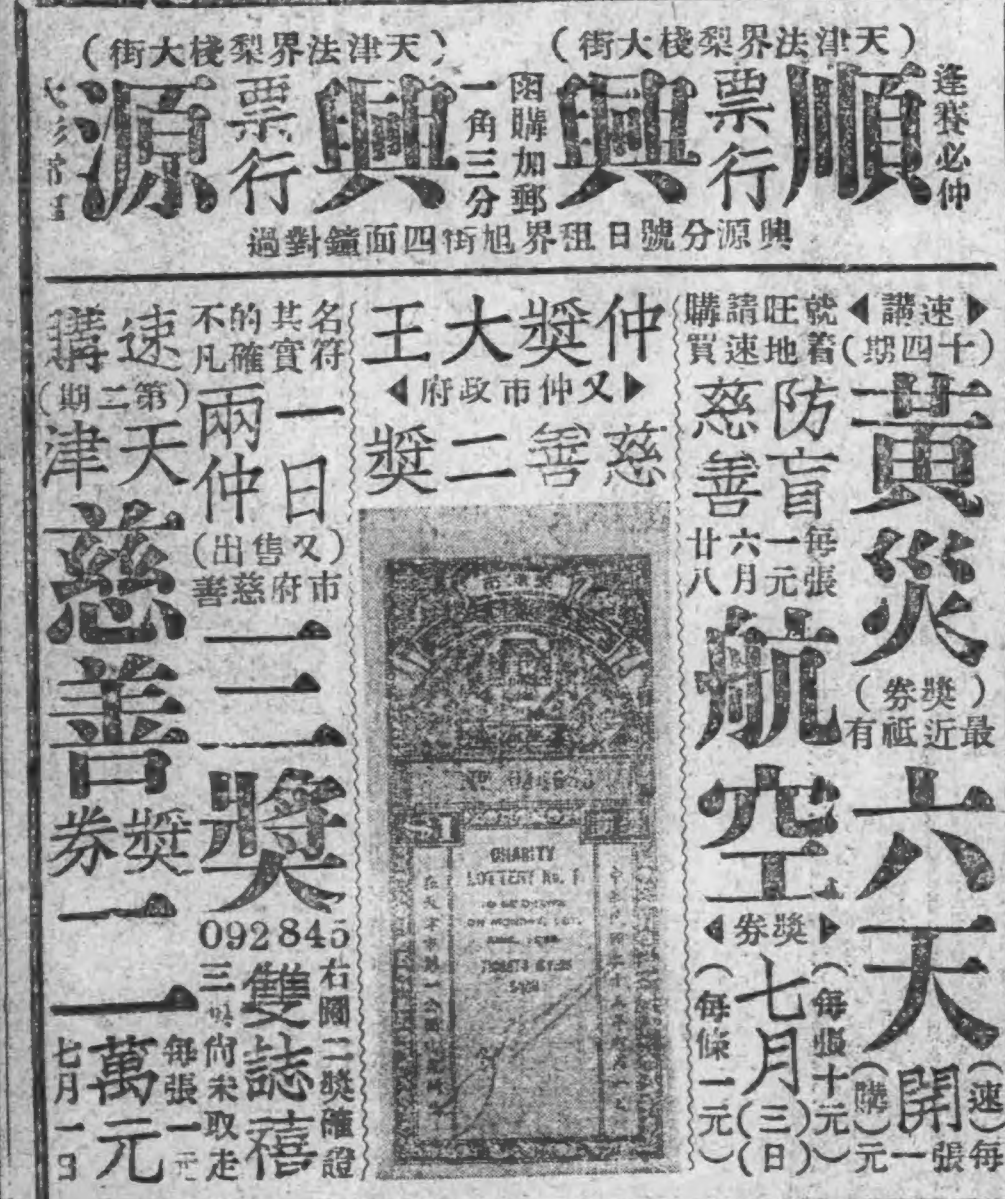 逢賽必仲
(天津法界梨棧大街)
順興
票行
函購加郵
一角三分
(天津法界梨棧大街)
興源
票行
興源分號日租界旭街四面鐘對過
速講
(十四期)
黃災
(獎券)
最近祗有
六天
開
(速購)
每張一元
就着
旺地
請速
購買
防盲
慈善
每張
一元
六月
廿八
航空
獎券
七月
(三日)
(每張十元)
(每條一元)
仲獎大王
又仲市政府
慈善二獎
CHARITY
LOTTERY No. 1
TO BE DRAWN
ON MONDAY, 1ST,
名符
其實
的確
不凡
一日
兩仲
(又售出)
市府慈善
三獎
092845
右圖二獎確證
雙誌禧
尚未取走
速購
(第二期)
天津
慈善
獎券
二
萬元
每張一元
七月一日